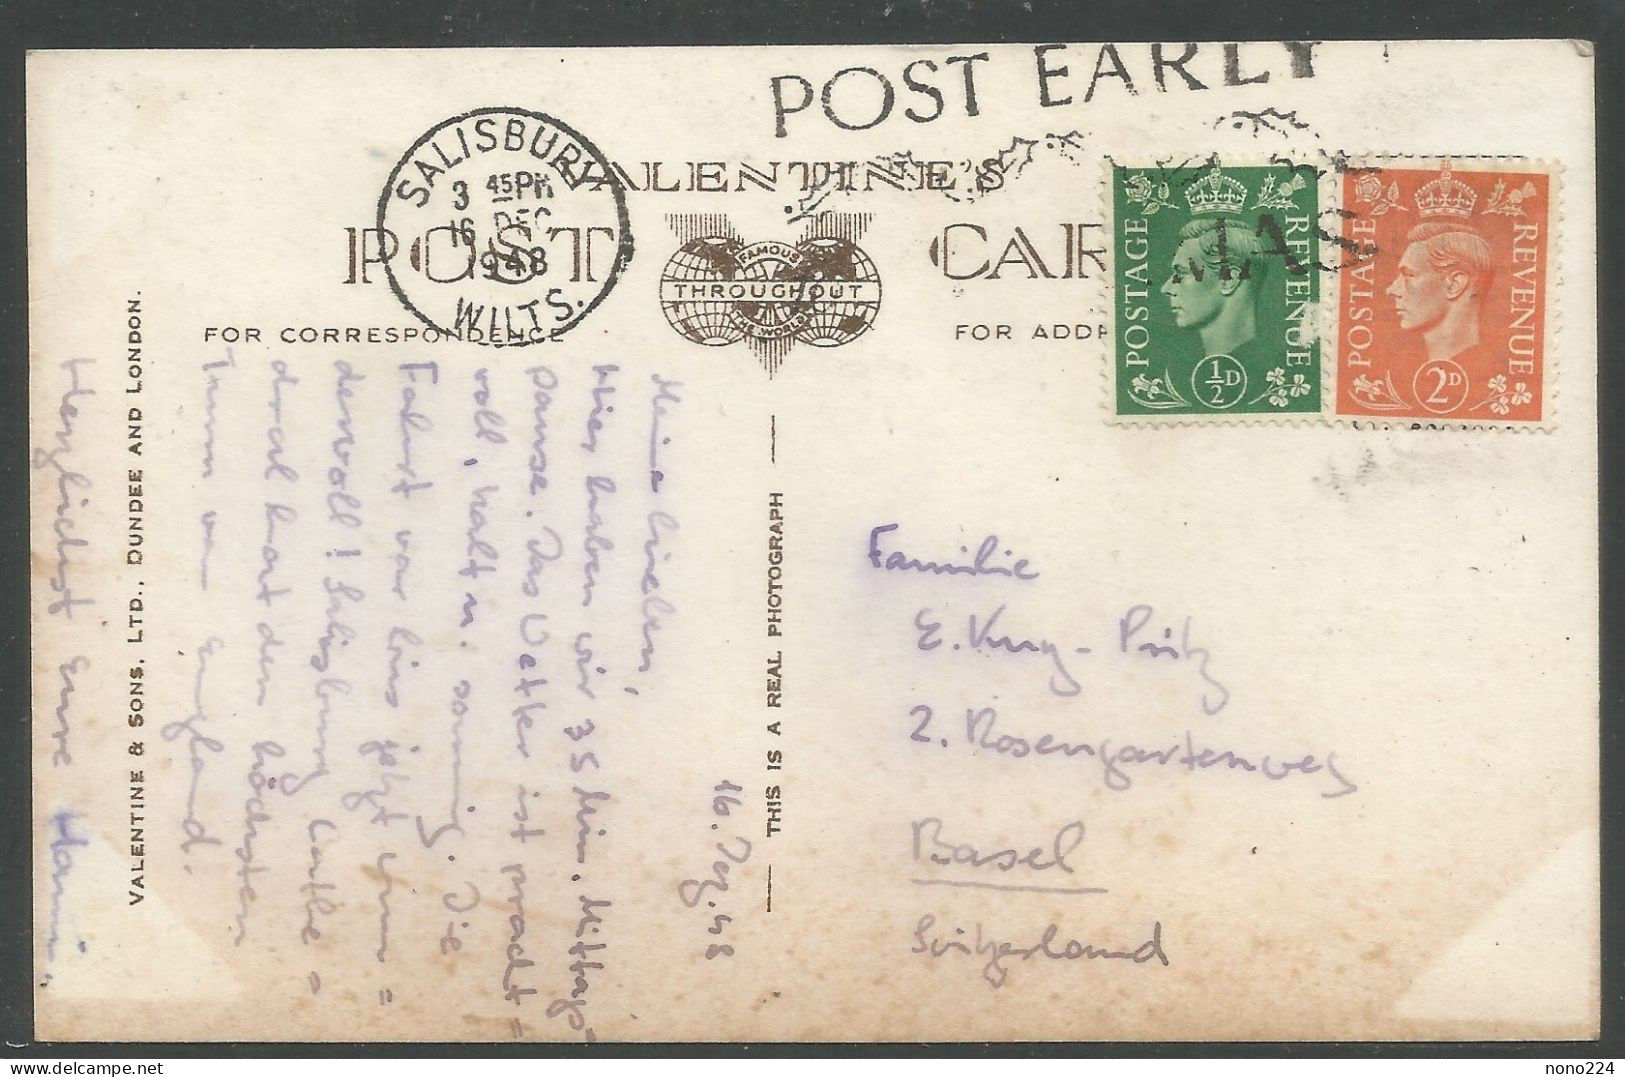 POST EARLY
SALISBURY
3 45 PM
16 DEC
1948
WILTS.
VALENTINE'S
POST CAR
FAMOUS
THROUGHOUT
THE WORLD
FOR CORRESPONDENCE
FOR ADDR
POSTAGE REVENUE
½D
POSTAGE REVENUE
2D
VALENTINE & SONS, LTD., DUNDEE AND LONDON.
THIS IS A REAL PHOTOGRAPH
16. Dez. 48
Meine Lieben,
Hier haben wir 35 Min. Mittags=
pause. Das Wetter ist pracht=
voll, kalt u. sonnig. Die
Fahrt war bis jetzt wun=
dervoll! Salisbury Cathe=
dral hat den höchsten
Turm von England.
Herzlichst Eure
Familie
E.
2. Rosengartenweg
Basel
Switzerland
nono224